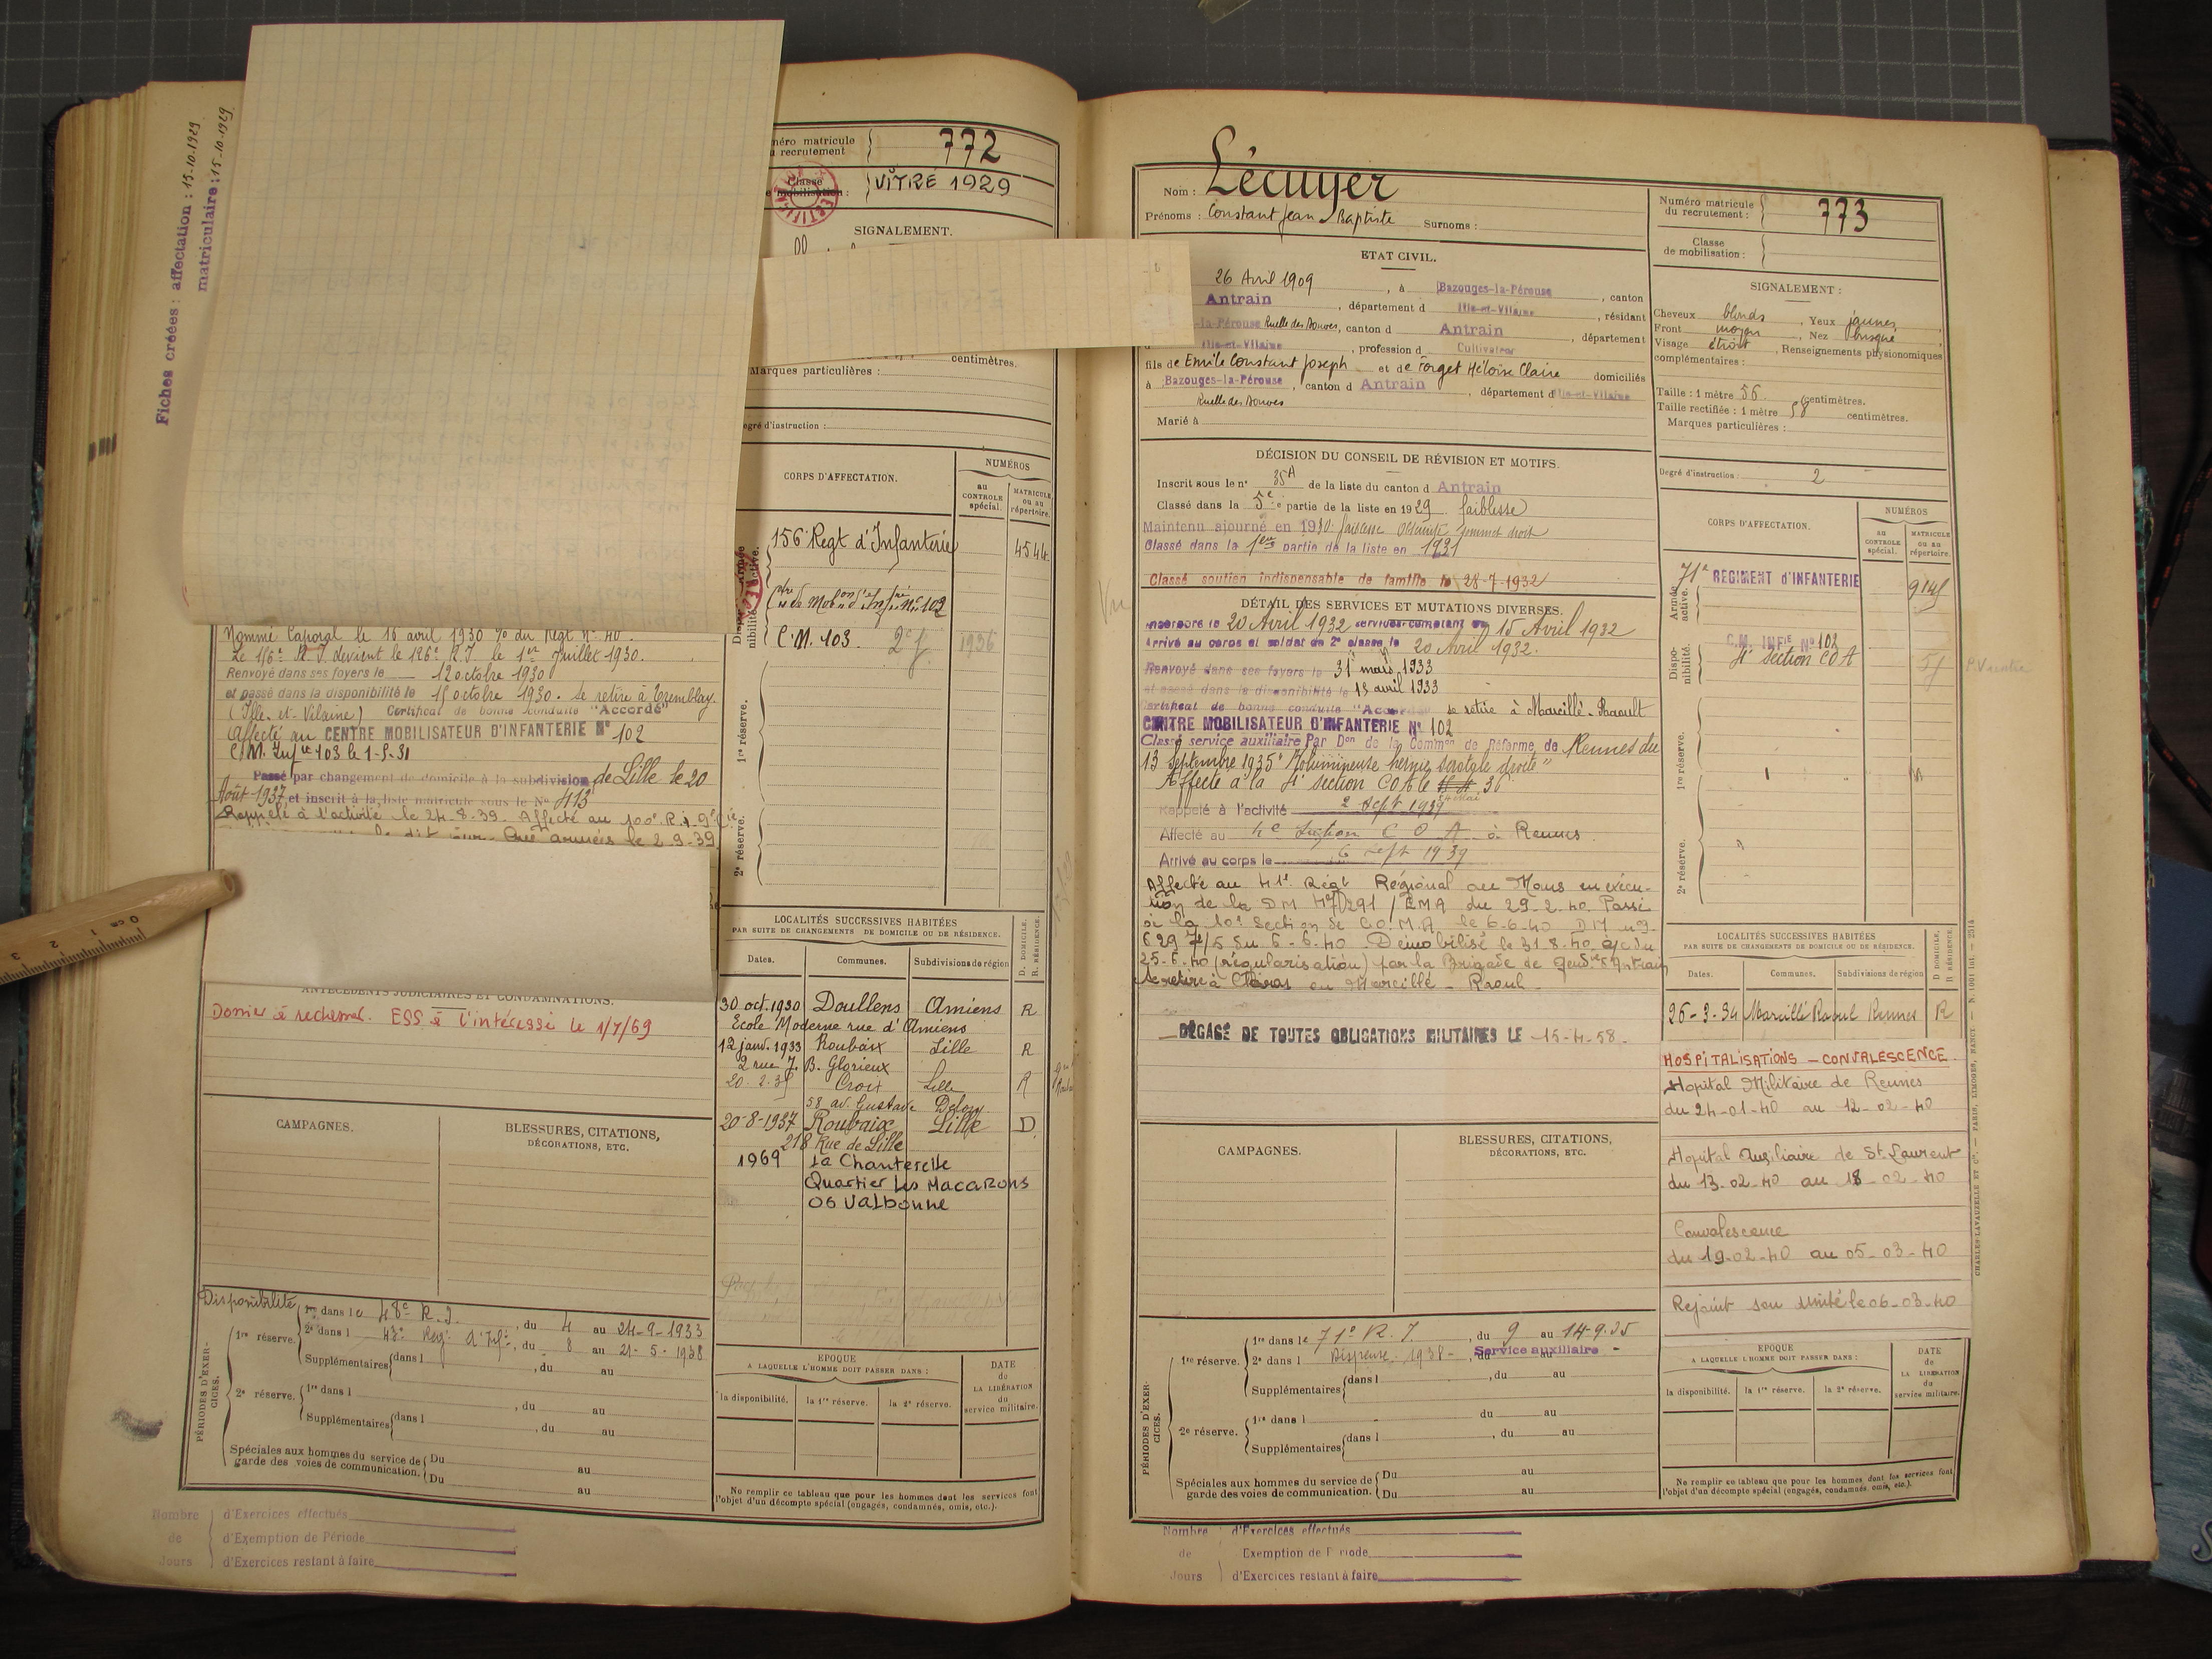 Fiches créées : affectation : 15-10-1929
matriculaire : 15-10-1929
néro matricule
recrutement
772
Classe
mobilisation :
VITRE 1929
SIGNALEMENT.
centimètres.
Marques particulières :
degré d'instruction :
CORPS D'AFFECTATION.
NUMÉROS
au
CONTROLE
spécial.
MATRICULE
ou au
répertoire.
156e Regt d'Infanterie
4544
C.M. 103.
1936
1re réserve.
2e réserve.
Nommé Caporal le 16 avril 1930 % du Régt N° 40.
Le 156e R.I. devient le 126e R.I le 1er Juillet 1930.
Renvoyé dans ses foyers le 12 octobre 1930
et passé dans la disponibilité le 15 octobre 1930. Se retire à Tremblay.
(Ille-et-Vilaine) Certificat de bonne conduite "Accordé"
Affecté au CENTRE MOBILISATEUR D'INFANTERIE N° 102
C.M. Infie 103 le 1-5-31
Passé par changement de domicile à la subdivision de Lille le 20
Août 1937 et inscrit à la liste matricule sous le N° 413
Rappelé à l'activité le 24-8-39. Affecté au 100e R.I.
aux armées le 2-9-39
ANTÉCÉDENTS JUDICIAIRES ET CONDAMNATIONS.
Dossier à rechercher. ESS à l'intéressé le 1/7/69
LOCALITÉS SUCCESSIVES HABITÉES
PAR SUITE DE CHANGEMENTS DE DOMICILE OU DE RÉSIDENCE.
D. DOMICILE.
R. RÉSIDENCE.
Dates.
Communes.
Subdivisions de région
30 oct. 1930 Doullens Amiens R
Ecole Moderne rue d'Amiens
12 janv. 1933 Roubaix Lille R
2 rue J. B. Glorieux
20-2-35 Croix Lille R
58 av. Gustave Delory
20-8-1937 Roubaix Lille D
218 Rue de Lille
1969 La Chanterelle
Quartier Les Macarons
06 Valbonne
CAMPAGNES.
BLESSURES, CITATIONS,
DÉCORATIONS, ETC.
Disponibilité
PÉRIODES D'EXER-
CICES.
1re réserve.
1re dans le 48e R.I. , du 4 au 24-9-1933
2e dans l 48e Reg. d'Inf. , du 8 au 21-5-1938
Supplémentaires dans l , du au
2e réserve.
1re dans l , du au
Supplémentaires dans l , du au
Spéciales aux hommes du service de
garde des voies de communication.
Du au
Du au
EPOQUE
A LAQUELLE L'HOMME DOIT PASSER DANS :
la disponibilité.
la 1re réserve.
la 2e réserve.
DATE
de
LA LIBÉRATION
du
service militaire.
Ne remplir ce tableau que pour les hommes dont les services font
l'objet d'un décompte spécial (engagés, condamnés, omis, etc.).
Nombre
de
Jours
d'Exercices effectués
d'Exemption de Période
d'Exercices restant à faire
Nom : Lécuyer
Prénoms : Constant Jean Baptiste Surnoms :
Numéro matricule
du recrutement :
773
Classe
de mobilisation :
ETAT CIVIL.
26 Avril 1909 , à Bazouges-la-Pérouse , canton
Antrain , département d Ille-et-Vilaine , résidant
-la-Pérouse Ruelle des Douves, canton d Antrain , département
d Ille-et-Vilaine , profession d Cultivateur
fils de Emile Constant Joseph et de Forget Héloïse Claire domiciliés
à Bazouges-la-Pérouse , canton d Antrain , département d Ille-et-Vilaine
Ruelle des Douves
Marié à
SIGNALEMENT :
Cheveux blonds , Yeux jaunes ,
Front moyen , Nez busqué ,
Visage étroit , Renseignements physionomiques
complémentaires :
Taille : 1 mètre 56 centimètres.
Taille rectifiée : 1 mètre 58 centimètres.
Marques particulières :
Degré d'instruction : 2
DÉCISION DU CONSEIL DE RÉVISION ET MOTIFS.
Inscrit sous le n° 35A de la liste du canton d Antrain
Classé dans la 5e partie de la liste en 1929 faiblesse
Maintenu ajourné en 1930 faiblesse Obscurité sommet droit
Classé dans la 1ere partie de la liste en 1931
Classé soutien indispensable de famille le 28-7-1932
DÉTAIL DES SERVICES ET MUTATIONS DIVERSES.
Incorporé le 20 Avril 1932 services comptant du 15 Avril 1932
Arrivé au corps et soldat de 2e classe le 20 Avril 1932.
Renvoyé dans ses foyers le 31 mars 1933
et passé dans la disponibilité le 15 avril 1933
Certificat de bonne conduite "Accordé" se retire à Marcillé-Raoult
CENTRE MOBILISATEUR D'INFANTERIE N° 102
Classé service auxiliaire Par Don de la Common de Réforme de Rennes du
13 Septembre 1935 "Volumineuse hernie scrotale droite"
Affecté à la 4e section COA le 36
Rappelé à l'activité 2 Sept 1939
Affecté au 4e Section C O A à Rennes.
Arrivé au corps le 6 Sept 1939
Affecté au 41e Régt Régional au Mans en exécu-
tion de la DM 147/291 / EMA du 29-2-40. Passé
à la 10e Section de C.O.M.A. le 6-6-40 DM n°
629 7e/5 du 6-6-40. Démobilisé le 31-8-40 à/c du
25-6-40 (régularisation) par la Brigade de Gendrie d'Antrain
Se retire à en Marcillé-Raoul.
DÉGAGÉ DE TOUTES OBLIGATIONS MILITAIRES LE 15-4-58
CORPS D'AFFECTATION.
NUMÉROS
au
CONTROLE
spécial.
MATRICULE
ou au
répertoire.
Armée
active.
71e RÉGIMENT d'INFANTERIE
Dispo-
nibilité.
C.M. INFie N° 102
4e section COA
1re réserve.
2e réserve.
LOCALITÉS SUCCESSIVES HABITÉES
PAR SUITE DE CHANGEMENTS DE DOMICILE OU DE RÉSIDENCE.
D DOMICILE
R RÉSIDENCE.
Dates.
Communes.
Subdivisions de région
26-3-34 Marcillé Raoul Rennes R
HOSPITALISATIONS - CONVALESCENCE.
Hopital Militaire de Rennes
du 24-01-40 au 12-02-40
Hopital Auxiliaire de St Laurent
du 13-02-40 au 18-02-40
Convalescence
du 19-02-40 au 05-03-40
Rejoint son unité le 06-03-40
CHARLES-LAVAUZELLE ET Cie. — PARIS, LIMOGES, NANCY
CAMPAGNES.
BLESSURES, CITATIONS,
DÉCORATIONS, ETC.
PÉRIODES D'EXER-
CICES.
1re réserve.
1re dans le 71e R.I. , du 9 au 14-9-35
2e dans l Dispensé 1938 - , du au
Service auxiliaire
Supplémentaires dans l , du au
2e réserve.
1re dans l du au
Supplémentaires dans l , du au
Spéciales aux hommes du service de
garde des voies de communication.
Du au
Du au
EPOQUE
A LAQUELLE L'HOMME DOIT PASSER DANS :
la disponibilité.
la 1re réserve.
la 2e réserve.
DATE
de
LA LIBÉRATION
du
service militaire.
Ne remplir ce tableau que pour les hommes dont les services font
l'objet d'un décompte spécial (engagés, condamnés, omis, etc.).
Nombre
de
Jours
d'Exercices effectués
Exemption de Période
d'Exercices restant à faire